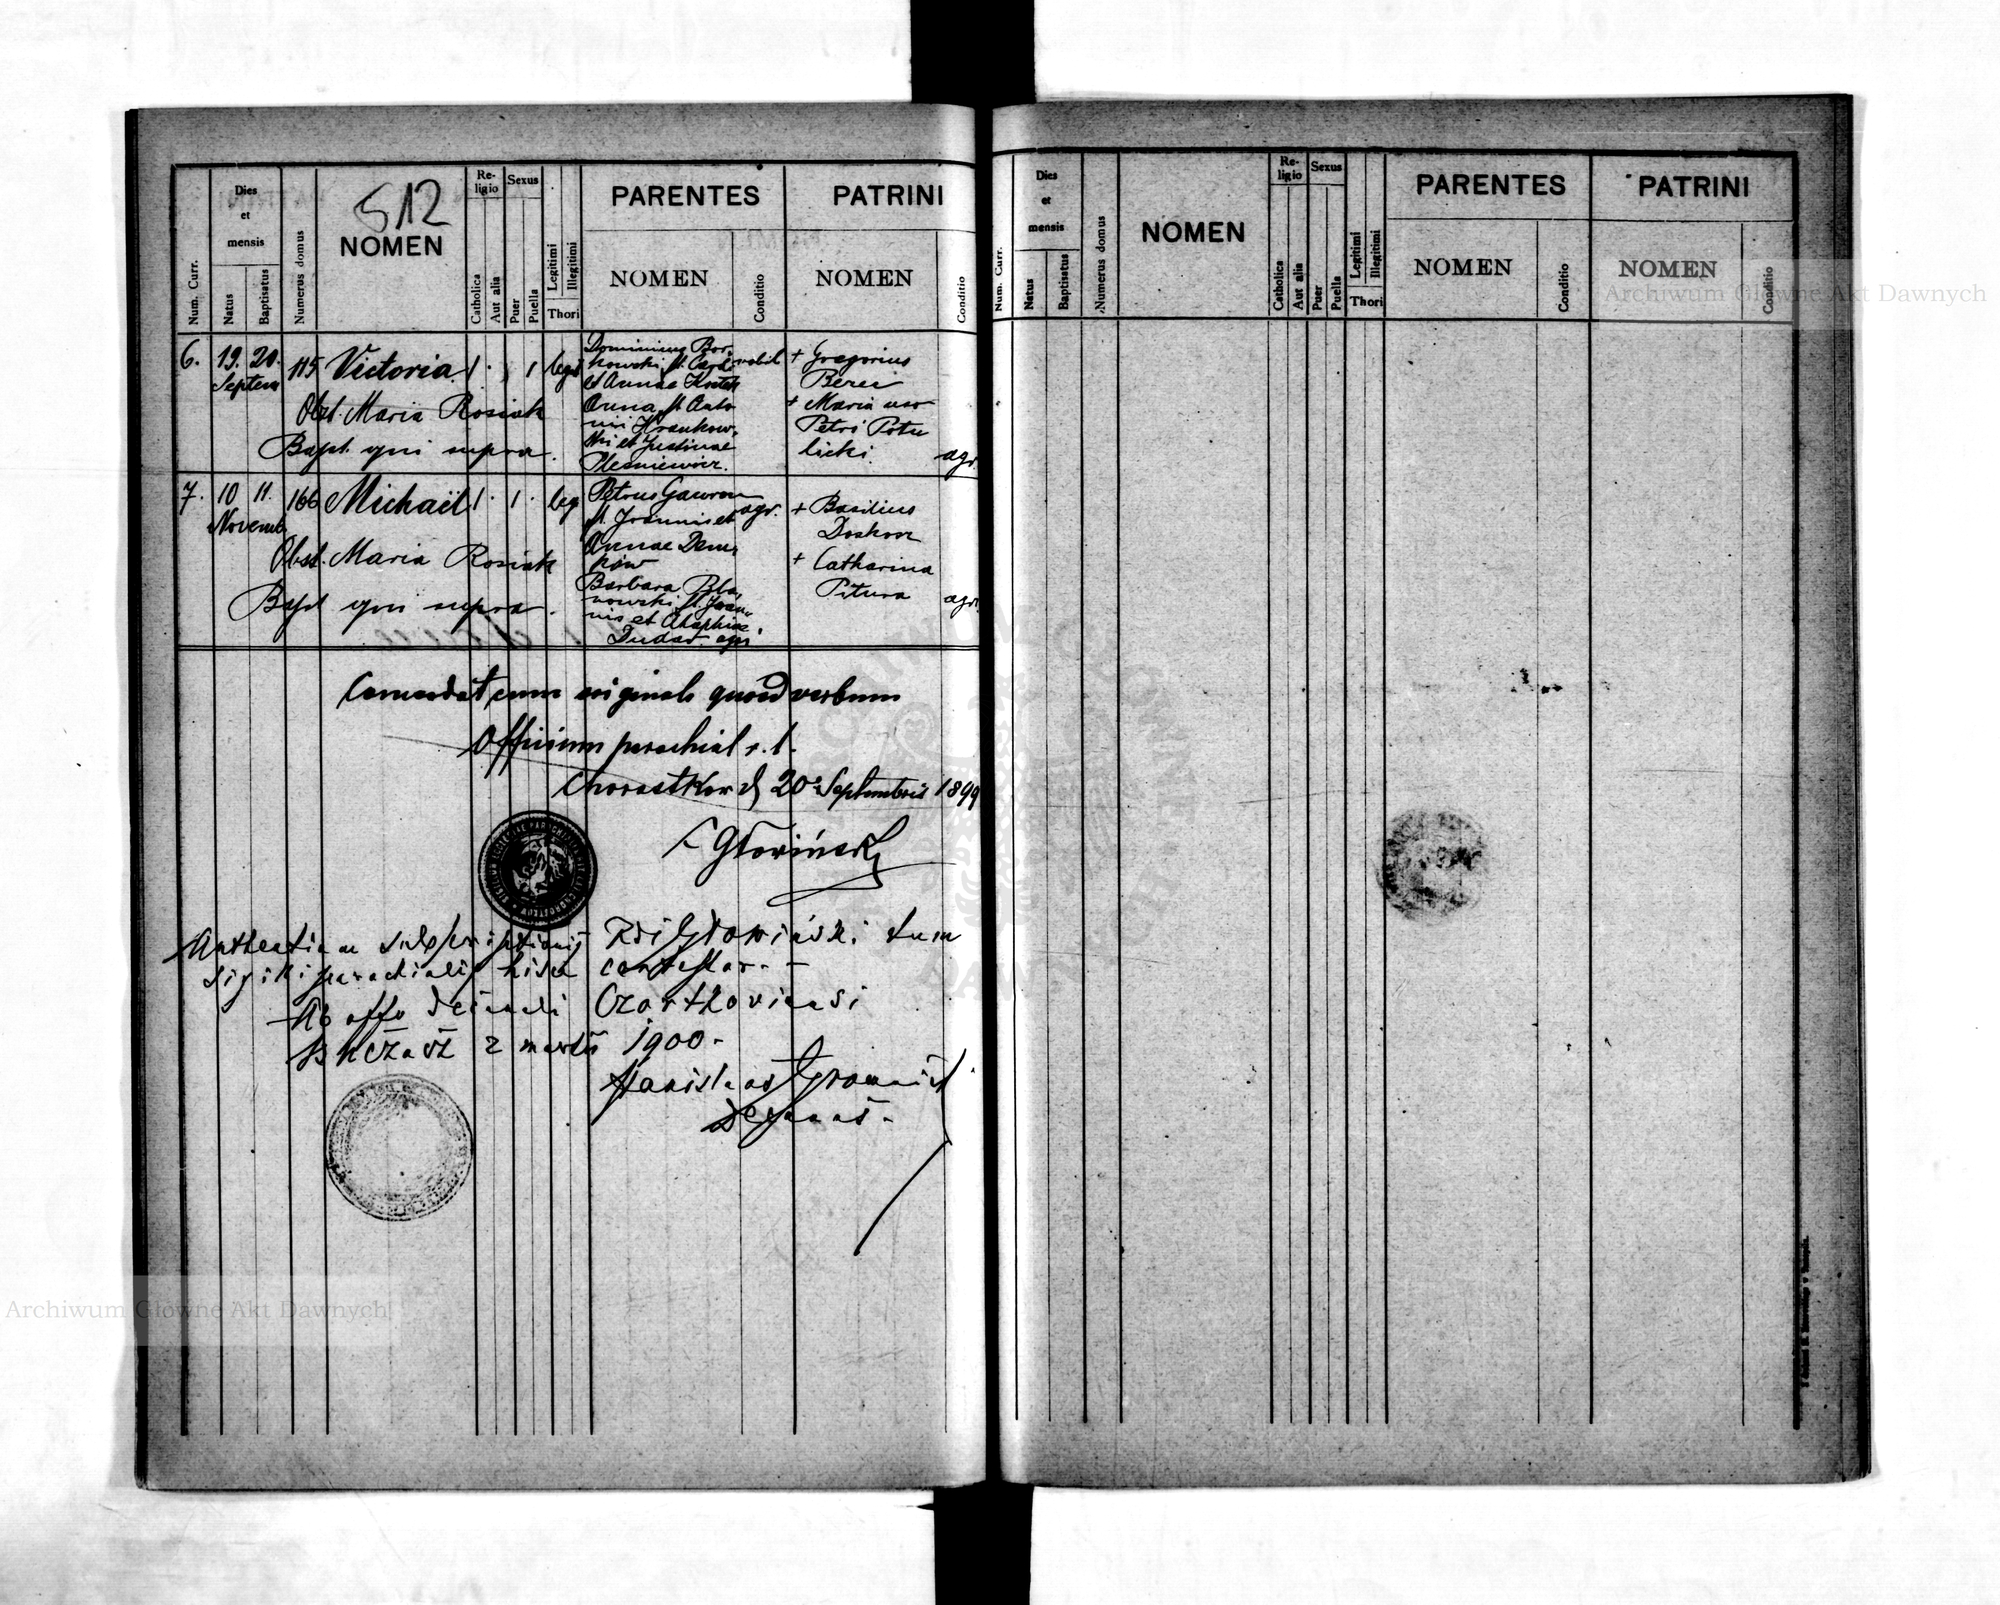 512
Num. Curr.
Dies et mensis
Natus
Baptisatus
Numerus domus
NOMEN
Religio
Catholica
Aut alia
Sexus
Puer
Puella
Legitimi
Illegitimi
Thori
PARENTES
NOMEN
Conditio
PATRINI
NOMEN
Conditio
6. 19. 20. Septem 115 Victoria 1 1
Obst. Maria Rosiak
Bapt. qui supra.
Dominicus Bor-
kowski fil. nobil
et Annae
Anna fil. Anto
nii
ski et Justinae
+ Gregorius
Berei
+ Maria uxor
Petri Potu
licki agr.
7. 10 11. Novemb 166 Michaël 1 1 leg
Obst. Maria Rosiak
Bapt qui supra.
Petrus Gawron
fil. Joannis et agr.
Annae Dem-
ków
Barbara
nowski fil. Joan-
nis et
Dudar agr
+ Basilius
+ Catharina
Pitura agr.
Concordat cum originale quoad verbum
Officium parochial r. l.
Chorostkow d 20 Septembris 1899
Głowiński
Authentiam subscriptionis Rdi Głowiński tum
sigilli parochialis hisce contestor. -
Ab offo Decanali Czortkoviensi
Buczacz 2 martii 1900.
Stanislaus Gromnicki
Decanus.
Num. Curr.
Dies et mensis
Natus
Baptisatus
Numerus domus
NOMEN
Religio
Catholica
Aut alia
Sexus
Puer
Puella
Legitimi
Illegitimi
Thori
PARENTES
NOMEN
Conditio
PATRINI
NOMEN
Conditio
Archiwum Główne Akt Dawnych
Archiwum Główne Akt Dawnych